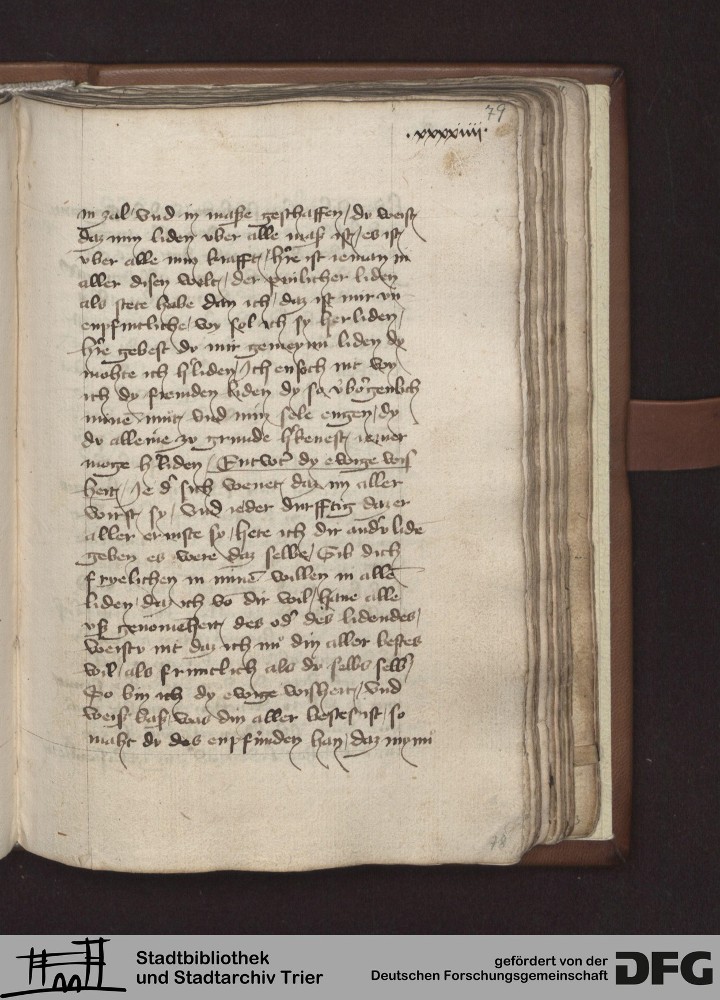 79
.xxxxiiii.
in zal / vnd in masse geschaffen / dv weist
daz min liden vber alle mass ist / es ist
vber alle min krafft / h're ist ieman in
aller diser welt / der pinlicher liden
als stete habe dan ich / daz ist mir vn
enpfintliche / wy sol ich sy herliden /
h're gebest dv mir gemeyni liden dz
mohte ich h'liden / Ich ensich nit wy
ich dy fremden liden dy so v'borgenlich
mine mut vnd min sele engen / dy
dv alleine zv grunde h'kenest iemer
moge h'liden / Entwort dy ewige wis
heit / Ie d' sich wenet daz im aller
wirst sy / vnd ieder durfftig daz er
aller ermste sy / hete ich dir and'v lide
geben es were daz selbe / Gib dich
fryelichen in minē willen in allē
liden / daz ich vō dir wil / hane alle
vss genōmeheit des od' des lidendes /
weistv nit daz ich nv̄ din aller bestes
wil / als frintlich als dv selbs selb /
So bin ich dy ewige wisheit / vnd
weiss bass / was din aller bestes ist / so
maht dv des enpfunden han / daz myni
78
Stadtbibliothek
und Stadtarchiv Trier
gefördert von der
Deutschen Forschungsgemeinschaft
DFG